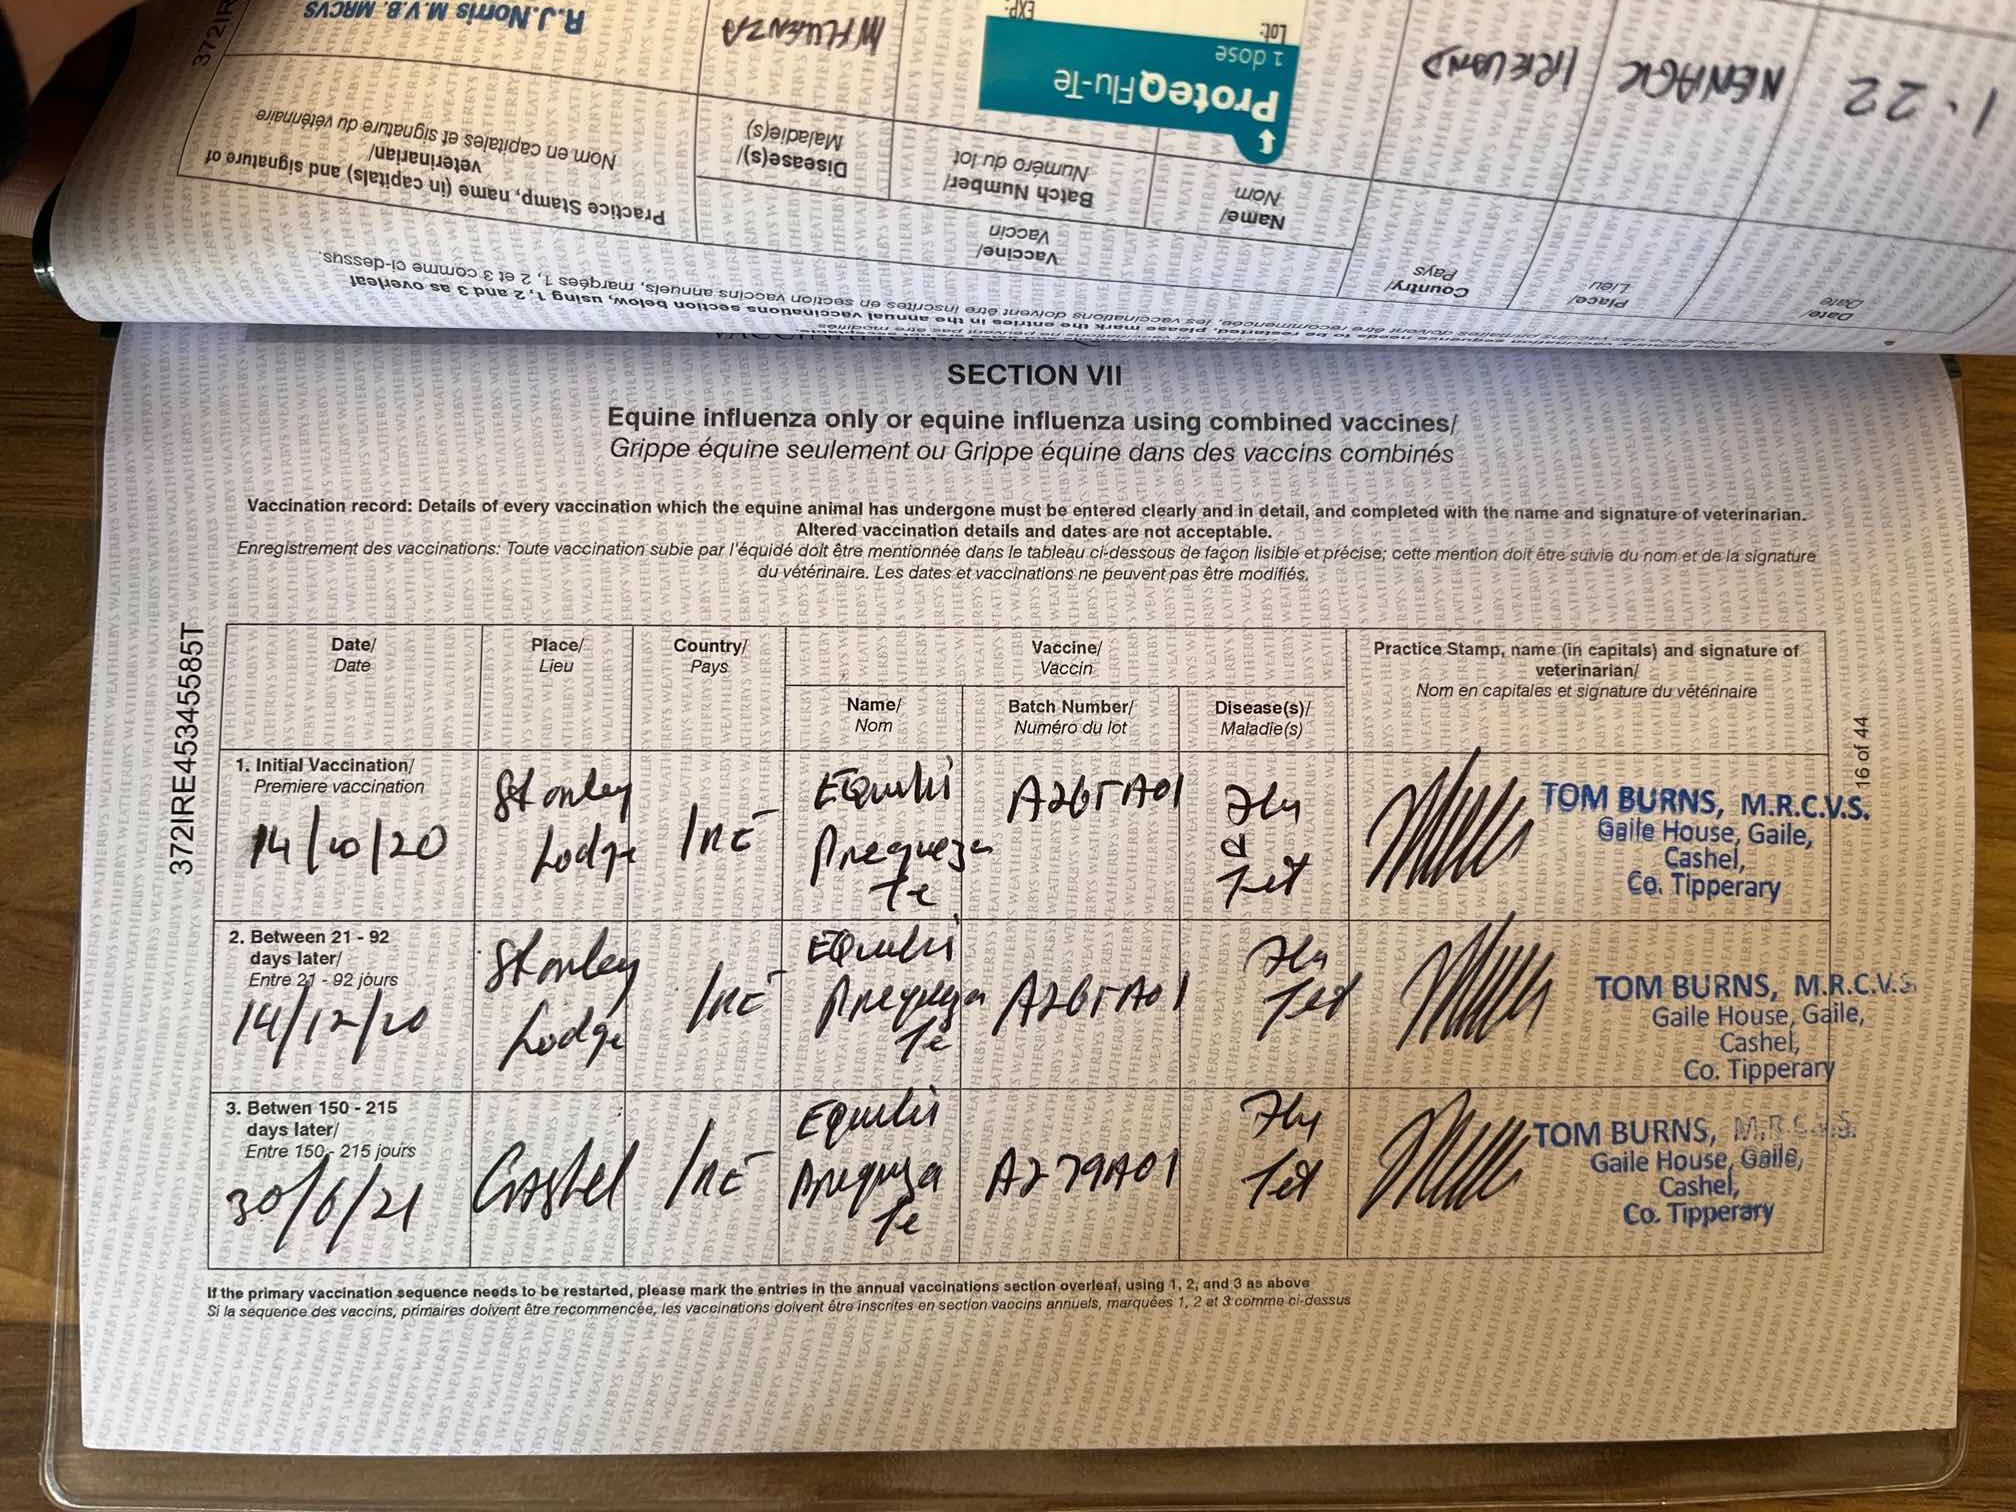 R.J. Norris M.V.B. MRCVS
INFLUENZA
EXP:
Lot:
1 dose
ProteqFlu-Te
IRELAND
NENAGH
1.22
372IRE
Practice Stamp, name (in capitals) and signature of
veterinarian/
Nom en capitales et signature du vétérinaire
Disease(s)/
Maladie(s)
Batch Number/
Numéro du lot
Name/
Nom
Vaccine/
Vaccin
Country/
Pays
Place/
Lieu
Date/
Date
primary vaccination sequence needs to be restarted, please mark the entries in the annual vaccinations section below, using 1, 2 and 3 as overleaf
vaccins primaires doivent être recommencée, les vaccinations doivent être inscrites en section vaccins annuels, marquées 1, 2 et 3 comme ci-dessus.
SECTION VII
Equine influenza only or equine influenza using combined vaccines/
Grippe équine seulement ou Grippe équine dans des vaccins combinés
Vaccination record: Details of every vaccination which the equine animal has undergone must be entered clearly and in detail, and completed with the name and signature of veterinarian.
Altered vaccination details and dates are not acceptable.
Enregistrement des vaccinations: Toute vaccination subie par l'équidé doit être mentionnée dans le tableau ci-dessous de façon lisible et précise; cette mention doit être suivie du nom et de la signature
du vétérinaire. Les dates et vaccinations ne peuvent pas être modifiés.
372IRE45345585T
16 of 44
Date/
Date
Place/
Lieu
Country/
Pays
Vaccine/
Vaccin
Practice Stamp, name (in capitals) and signature of
veterinarian/
Nom en capitales et signature du vétérinaire
Name/
Nom
Batch Number/
Numéro du lot
Disease(s)/
Maladie(s)
1. Initial Vaccination/
Premiere vaccination
14/10/20
Stonley
Lodge
IRE
Equilis
Prequeza
Te
A265A01
Flu
&
Tet
TOM BURNS, M.R.C.V.S.
Gaile House, Gaile,
Cashel,
Co. Tipperary
2. Between 21 - 92
days later/
Entre 21 - 92 jours
14/12/20
Stonley
Lodge
IRE
Equilis
Prequeza
Te
A265A01
Flu
Tet
TOM BURNS, M.R.C.V.S.
Gaile House, Gaile,
Cashel,
Co. Tipperary
3. Betwen 150 - 215
days later/
Entre 150 - 215 jours
30/6/21
Cashel
IRE
Equilis
Prequeza
Te
A279A01
Flu
Tet
TOM BURNS, M.R.C.V.S.
Gaile House, Gaile,
Cashel,
Co. Tipperary
If the primary vaccination sequence needs to be restarted, please mark the entries in the annual vaccinations section overleaf, using 1, 2, and 3 as above
Si la séquence des vaccins, primaires doivent être recommencée, les vaccinations doivent être inscrites en section vaccins annuels, marquées 1, 2 et 3 comme ci-dessus